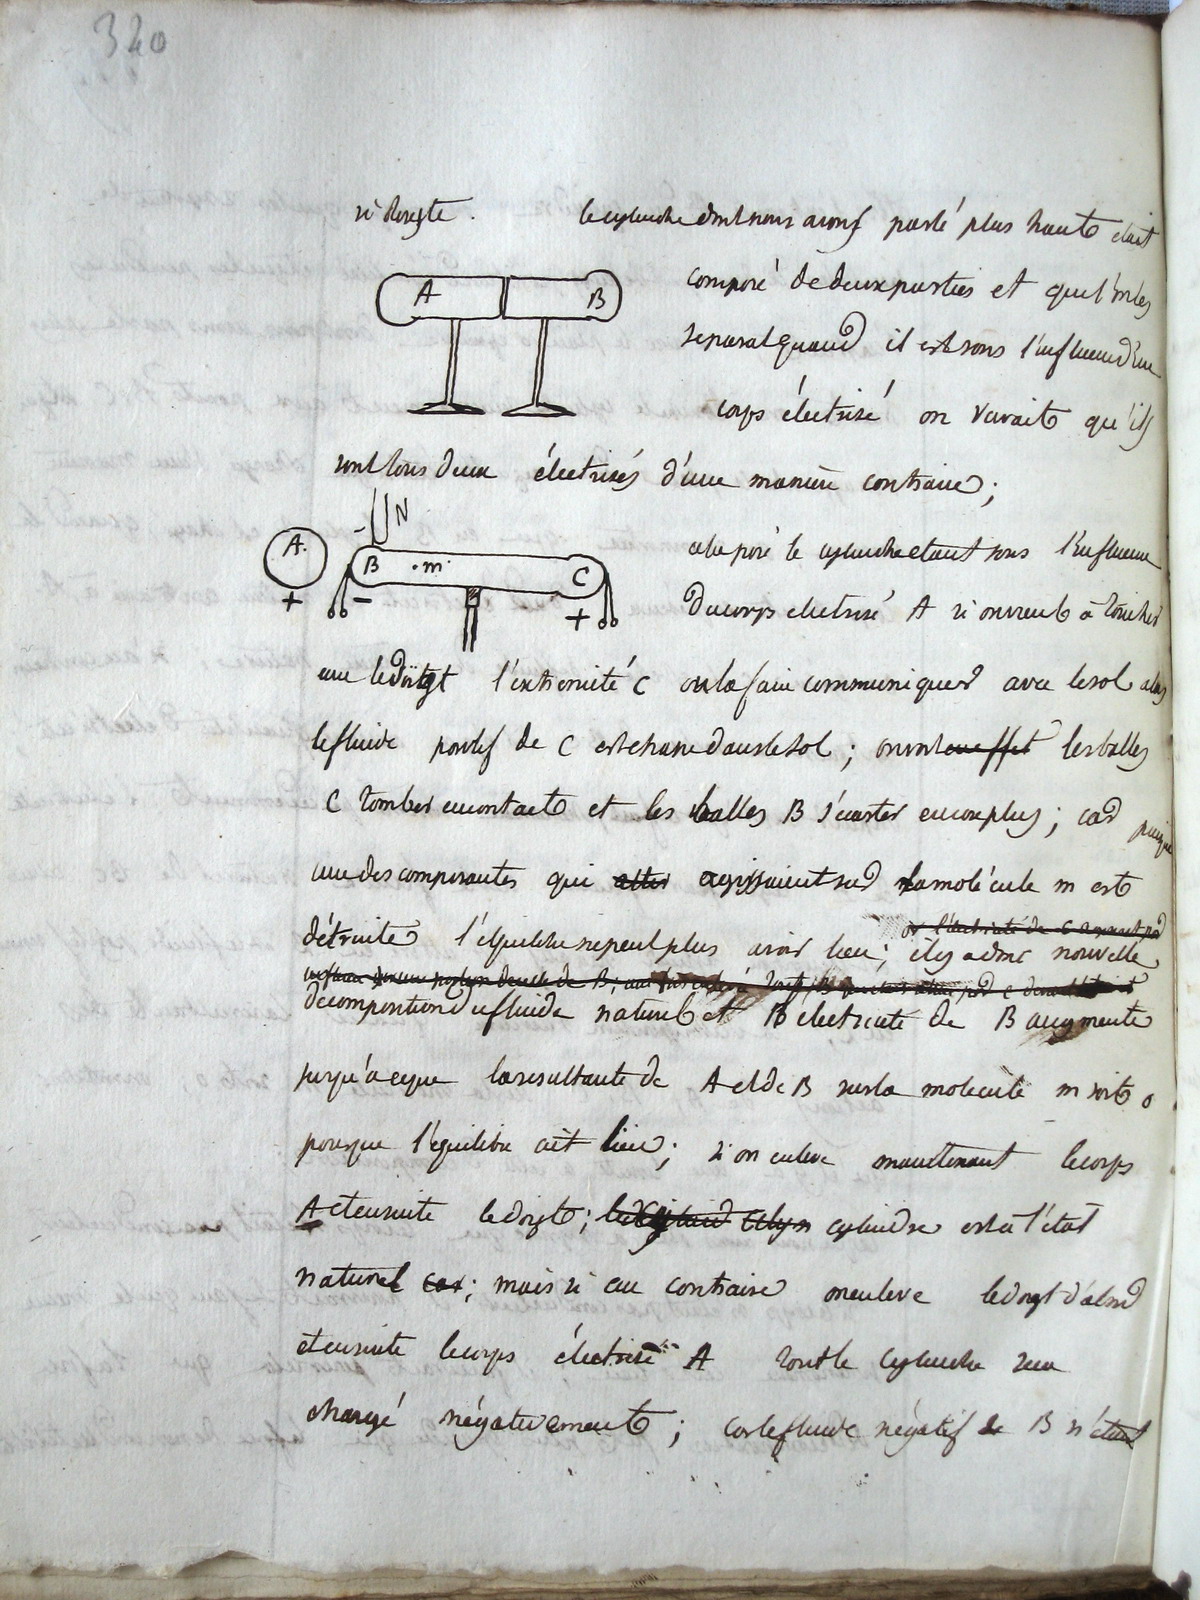 320
si le cylindre dont nous avons parlé plus haut était
A B
composé de deux parties et que l'on les
separat quand il est sous l'influence d'un
corps électrisé on verrait qu'ils
sont tous deux électrisés d'une manière contraire;
N
A. B . m . C
+ - +
cela posé le cylindre etant sous l'influence
du corps electrisé A si on vient à toucher
avec le doigt l'extremité C ou la faire communiquer avec le sol alors
le fluide positif de C est chassé dans le sol; on voit en effet les balles
C tomber en contact et les balles B s'écarter encore plus; car puisque
une des composantes qui agissaient sur la molécule m est
détruite l'équilibre ne peut plus avoir lieu; il y a donc nouvelle
decomposition du fluide naturel et electricité de B augmente
jusqu'a ce que la resultante de A et de B sur la molecule m soit o
pour que l'equilibre ait lieu; si on enleve maintenant le corps
A et ensuite le doigt; cylindre est à l'état
naturel car; mais si au contraire on enleve le doigt d'abord
et ensuite le corps électrisé A tout le cylindre sera
chargé négativement; car le fluide négatif de B n'étant